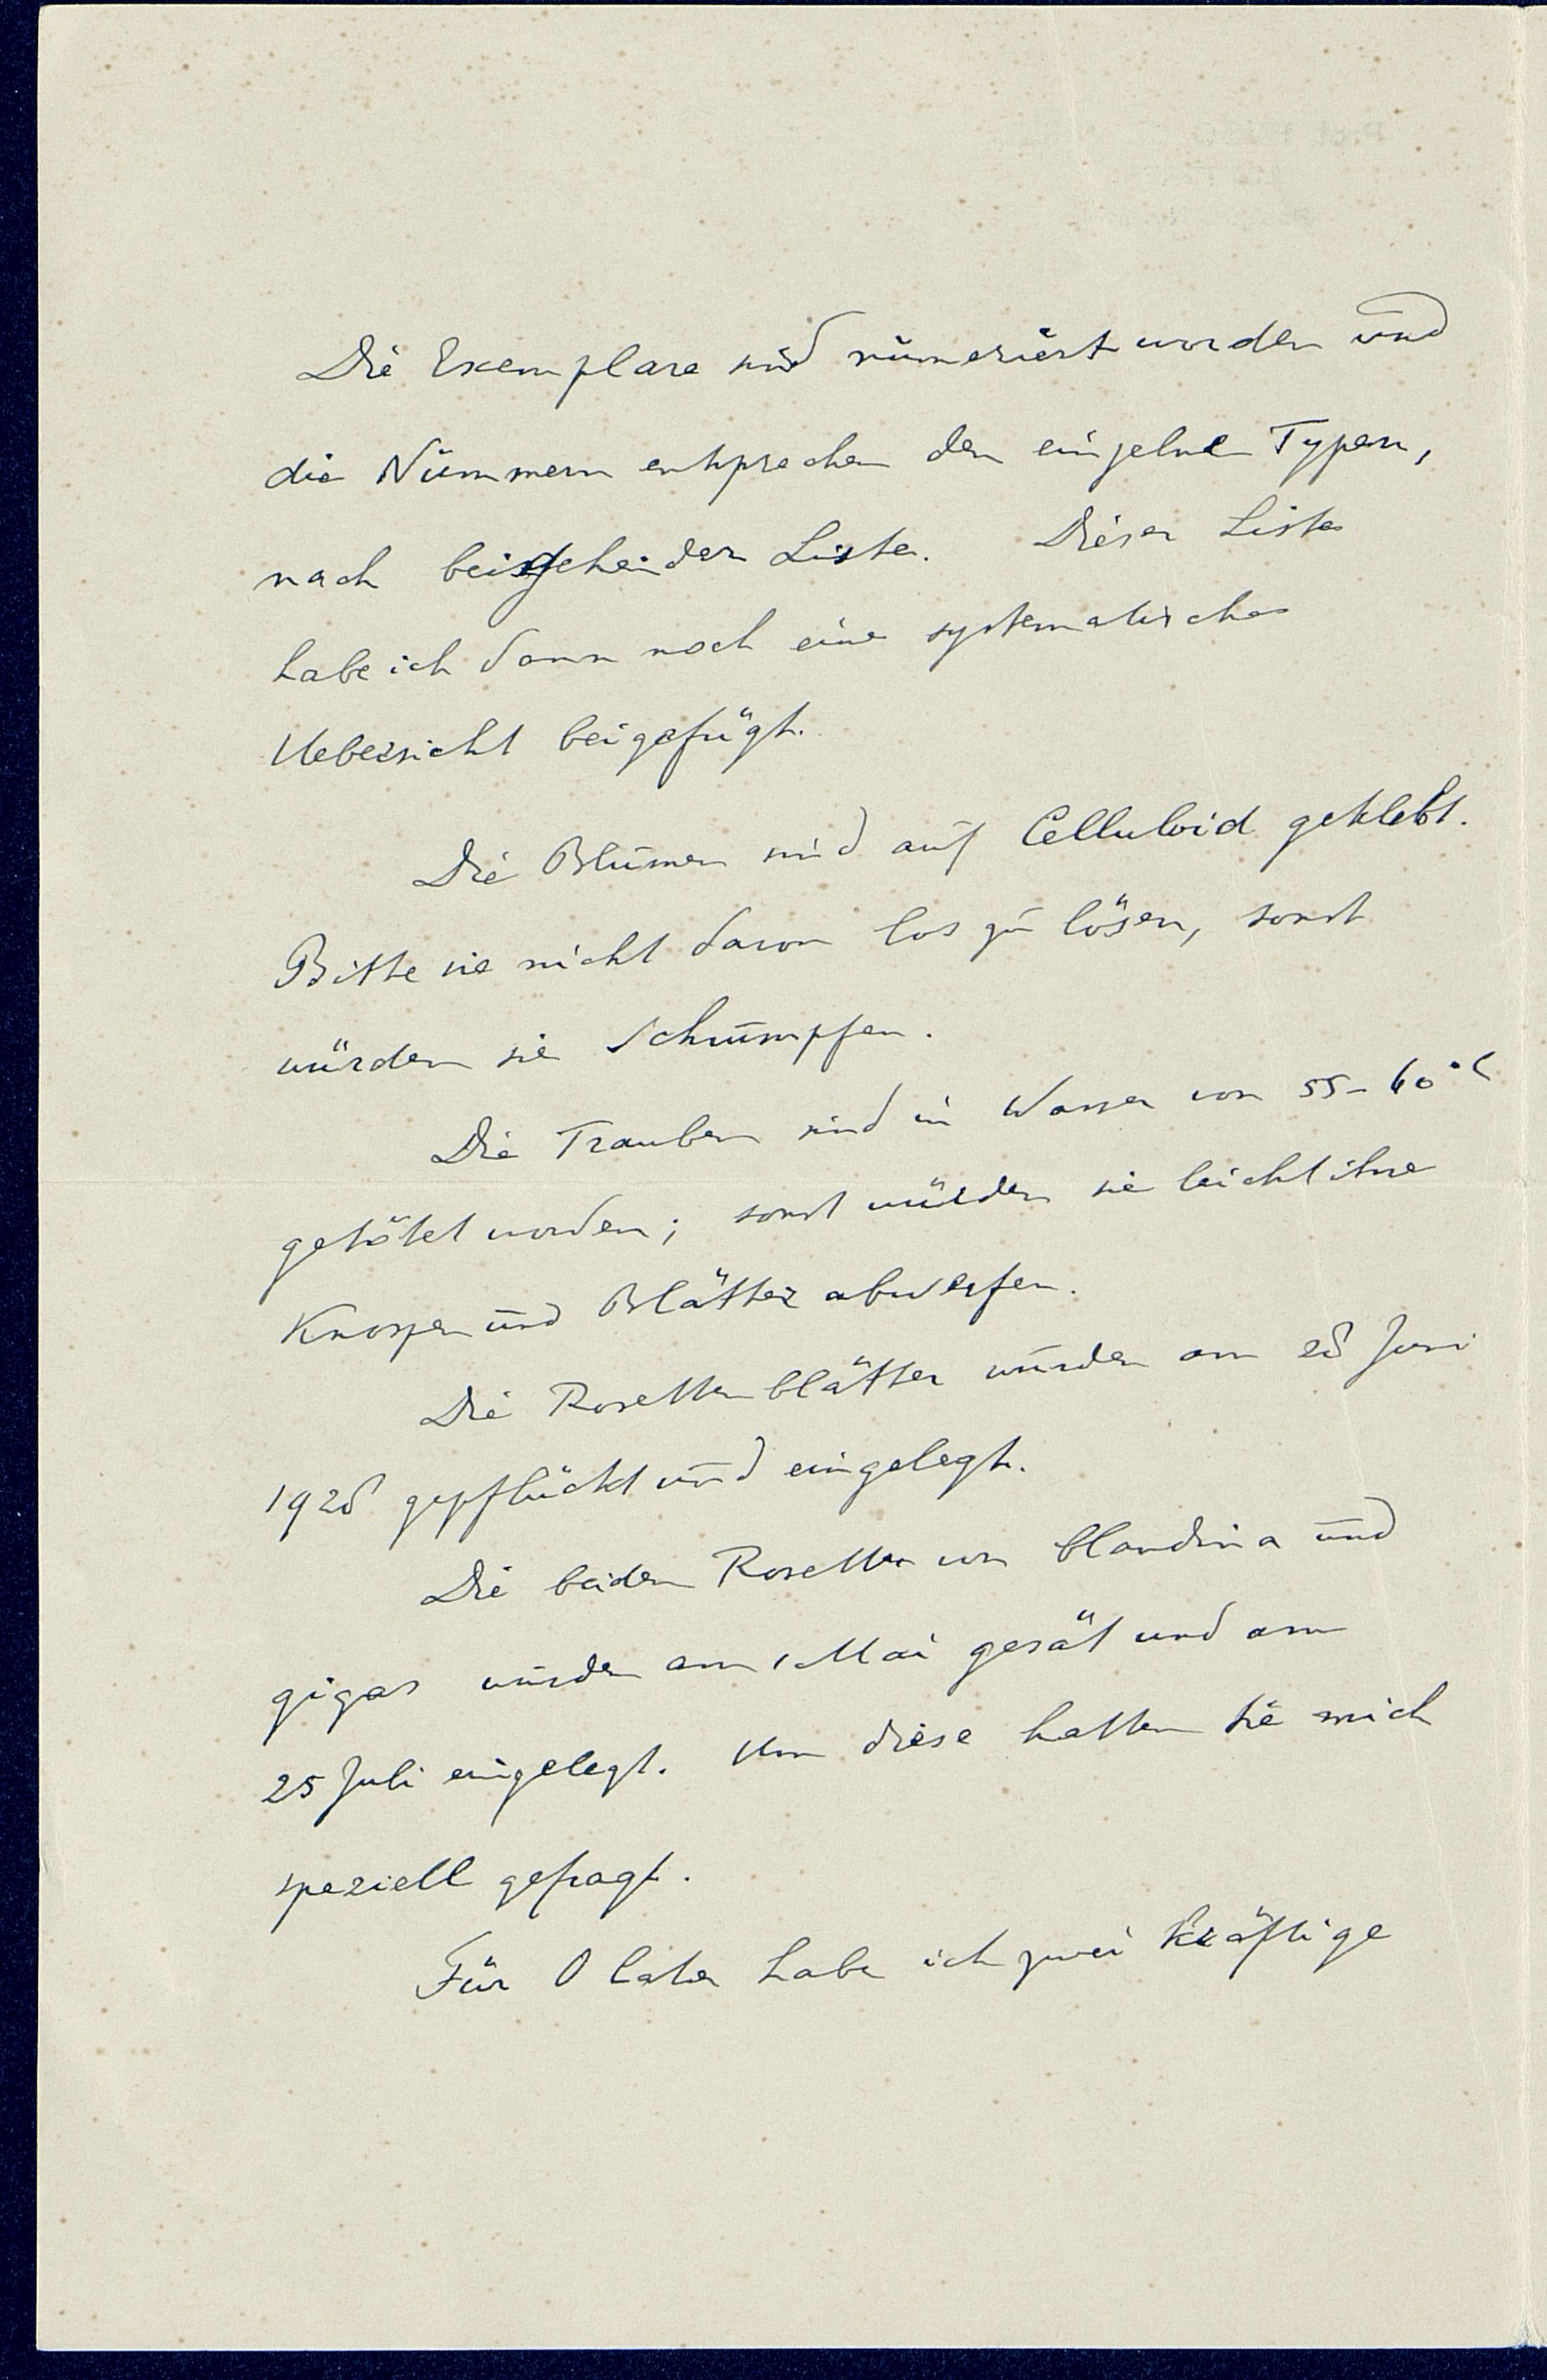 Die Exemplare sind numeriert worden und
die Nummern entsprechen den einzelnen Typen,
nach beigehender Liste. Dieser Liste
habe ich dann noch eine systematische
Uebersicht beigefügt.
Die Blumen sind auf Celluloid geklebt.
Bitte sie nicht davon los zu lösen, sonst
würden sie schrumpfen.
Die Trauben sind in Wasser von 55-60°C
getötet worden; sonst würden sie leicht ihre
Knospen und Blätter abwerfen.
Die Rosettenblätter wurden am 28 Juni
1928 gepflückt und eingelegt.
Die beiden Rosetten von blandina und
gigas wurden am 1 Mai gesät und am
25 Juli eingelegt. Um diese hatten Sie mich
speziell gefragt.
Für O lata habe ich zwei kräftige